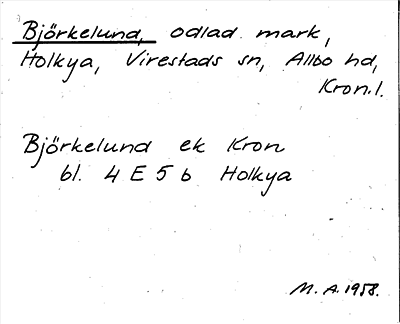 Björkelund, odlad mark,
Holkya, Virestads sn, Allbo hd,
Kron.l.
Björkelund ek Kron
bl. 4 E 5 b Holkya
M. A. 1958.